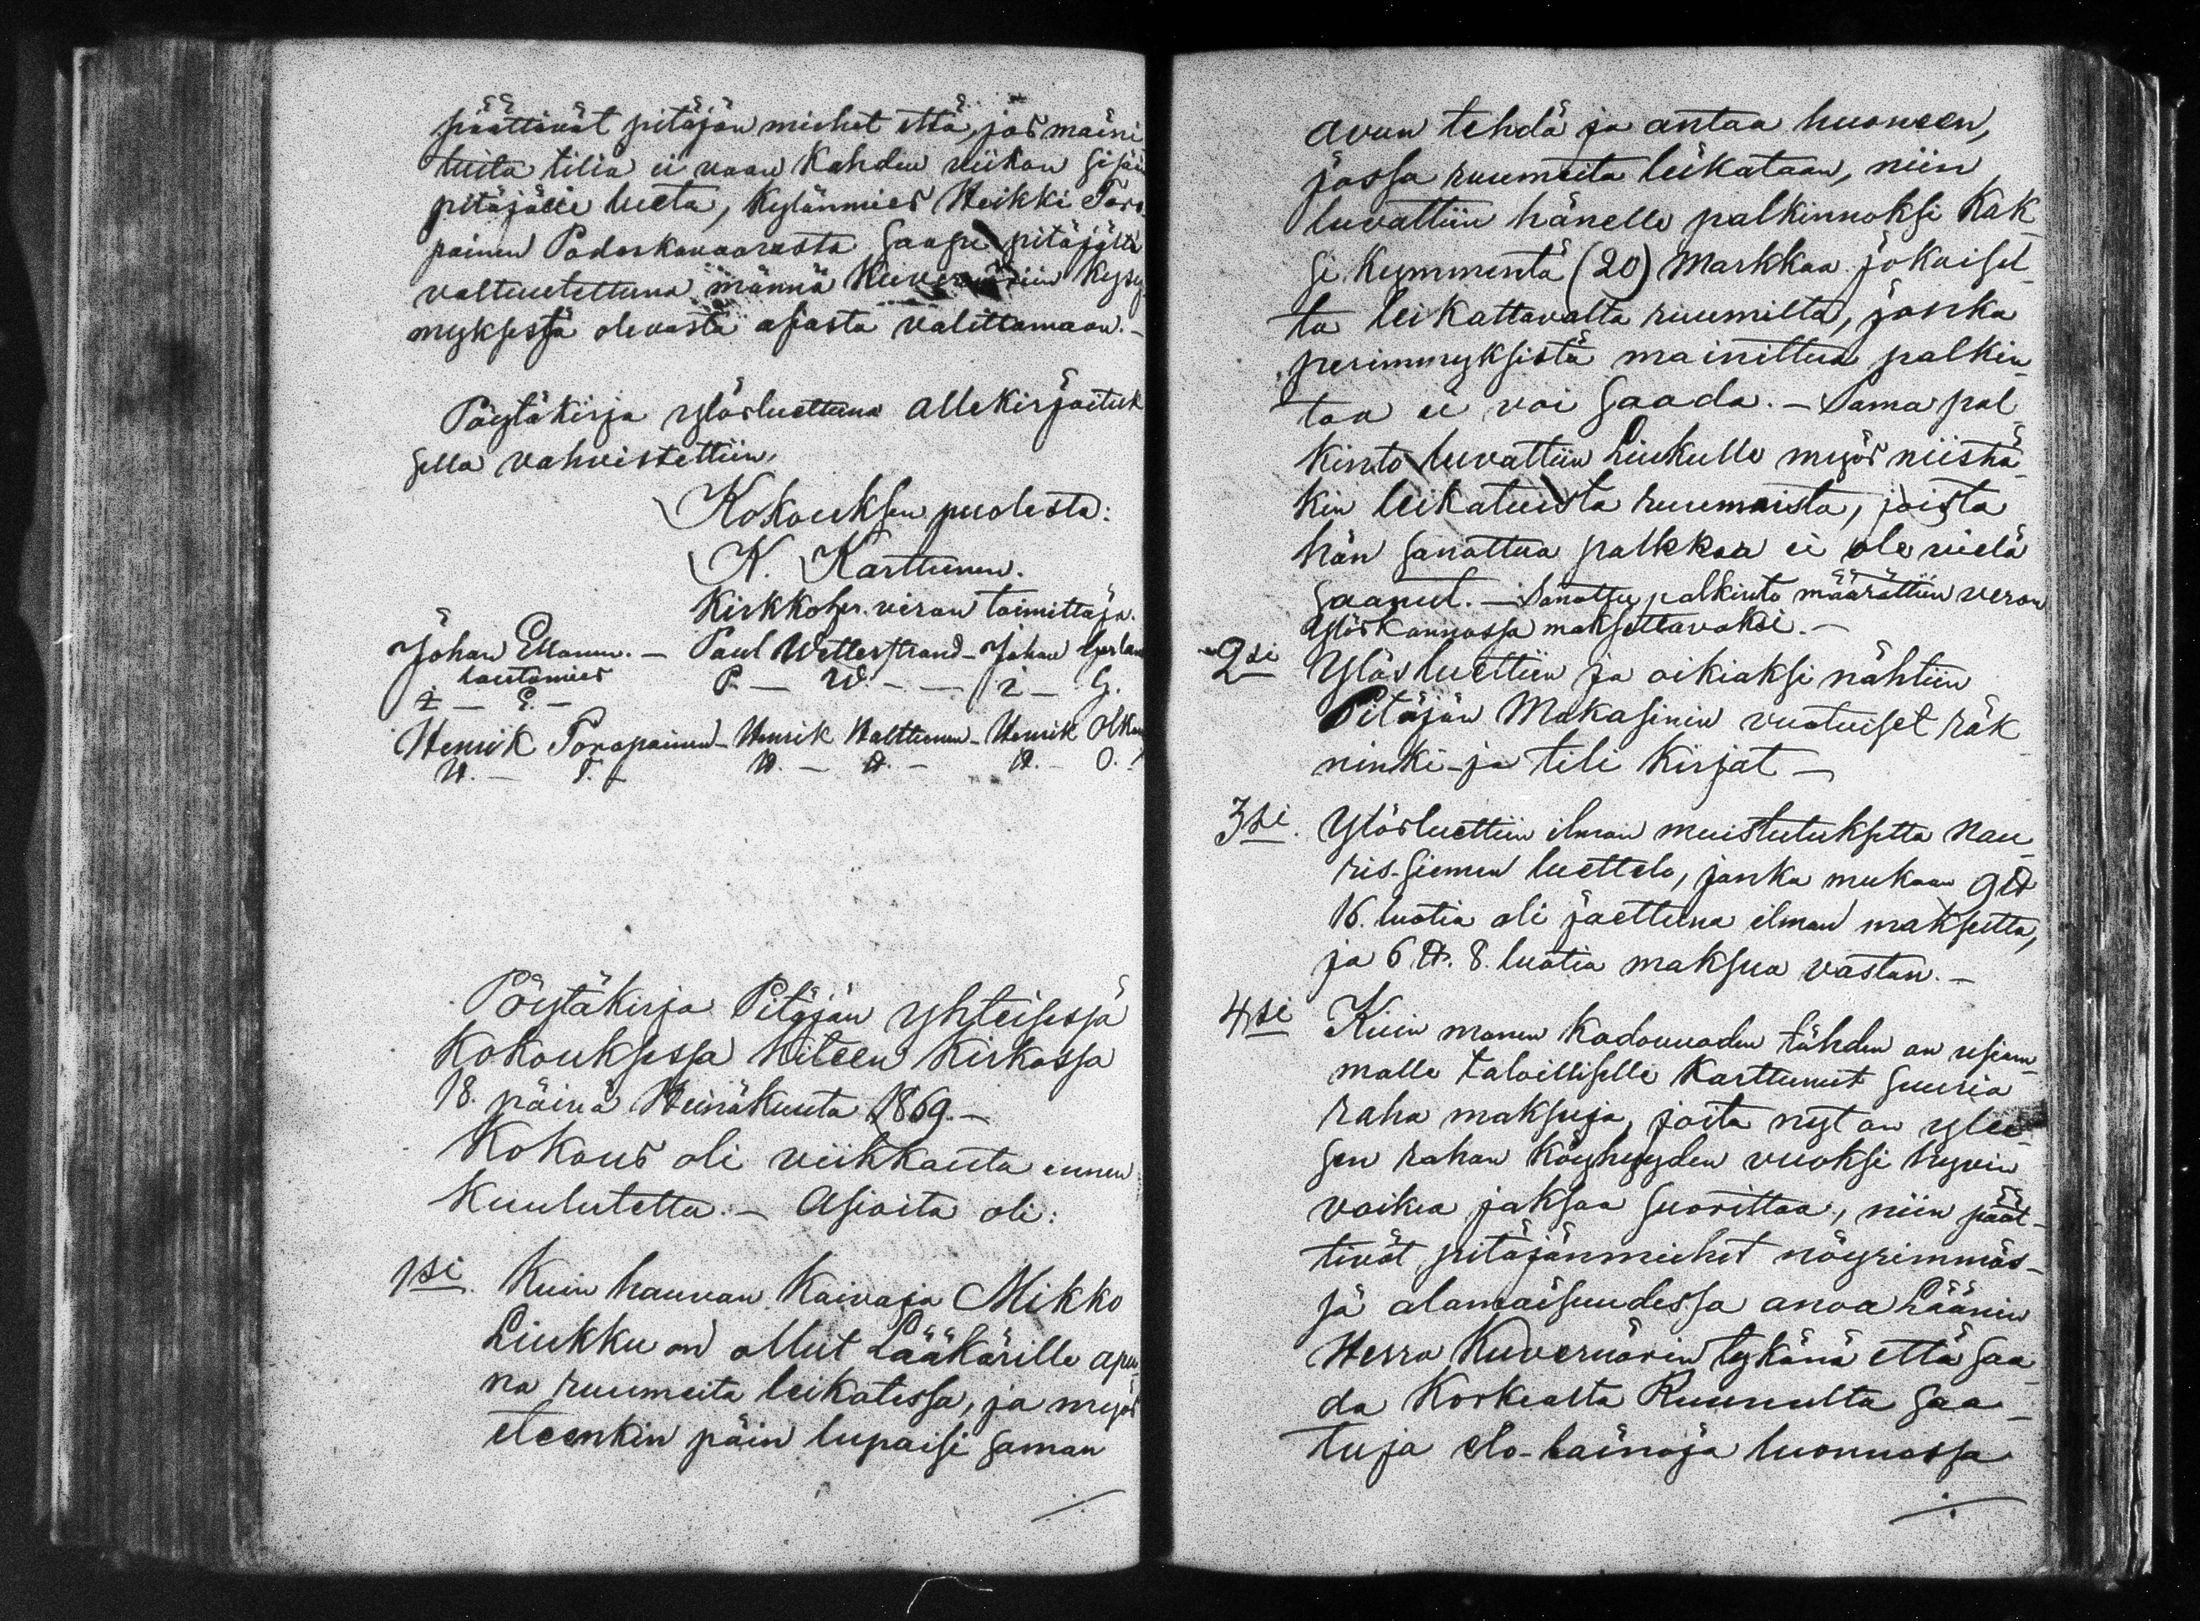 päättivät pitäjän miehet että, jos maini
tuita tiliä ei vaan Kahden viikon sisään
pitäjälle lueta, Kylänmies Heikki Toro
painen Potoskavaarasta saapi pitäjältä
valtuutettuna männä Kuvernöriin Kysy
myksessä olevasta asiasta valittamaan. –
Pöytäkirja ylösluettuna allekirjoituk
sella vahvistettiin.
Kokouksen puolesta:
K. Karttunen.
Kirkkoher. viran toimittaja.
Johan Ellonen. – Paul Wetterstrand – Johan
lautamies
P. – W. – – J – G.
J – E. –
Henrik Toropainen – Henrik Halttunen – Henrik
H. – T. – H. – H. – H. – O.
Pöytäkirja Pitäjän yhteisessä
Kokouksessa Kiteen Kirkossa
18. päivä Heinäkuuta 1869. –
Kokous oli viikkauta ennen
Kuulutettu. – Asioita oli:
1si. Kuin hauvan Kaivaja Mikko
Liukku on ollut Lääkärille apu
na ruumeita leikatessa, ja myös
eteenkin päin lupaisi saman
./.
avun tehdä ja antaa huoneen,
jossa ruumeita leikataan, niin
luvattiin hänelle palkinnoksi Kak
si Kymmentä (20) Markkaa jokaisel
ta leikattavalta ruumilta, jonka
perimmyksistä mainittua palkin
toa ei voi saada. – Sama pal
kinto luvattiin Liukulle myös niistä
kin leikatuista ruumeista, joista
hän sanottua palkkaa ei ole vielä
saanut. – Sanottu palkinto määrättiin veron
ylöskannossa maksettavaksi. –
2si Ylösluettiin ja oikiaksi nähtiin
Pitäjän Makasinin vuotuiset räk
ninki- ja tili Kirjat –
3si. Ylösluettiin ilman muistutuksetta Nau
ris-siemen luettelo, jonka mukaan 9 ℔
16. luotia oli jaettuna ilman maksutta,
ja 6 ℔. 8. luotia maksua vastan. –
4si Kuin monen Kadovuoden tähden on usiam
malle taloilliselle Karttunut suuria
raha maksuja, joita nyt on ylei
sen rahan Köyhyyden vuoksi hyvin
vaikea jaksaa suorittaa, niin päät-
tivät pitäjänmiehet nöyrimmäs-
sä alamaisuudessa anoa Läänin
Herra Kuvernörin tykönä että saa
da Korkealta Ruunulta saa-
tuja elo-lainoja luonnossa
./.